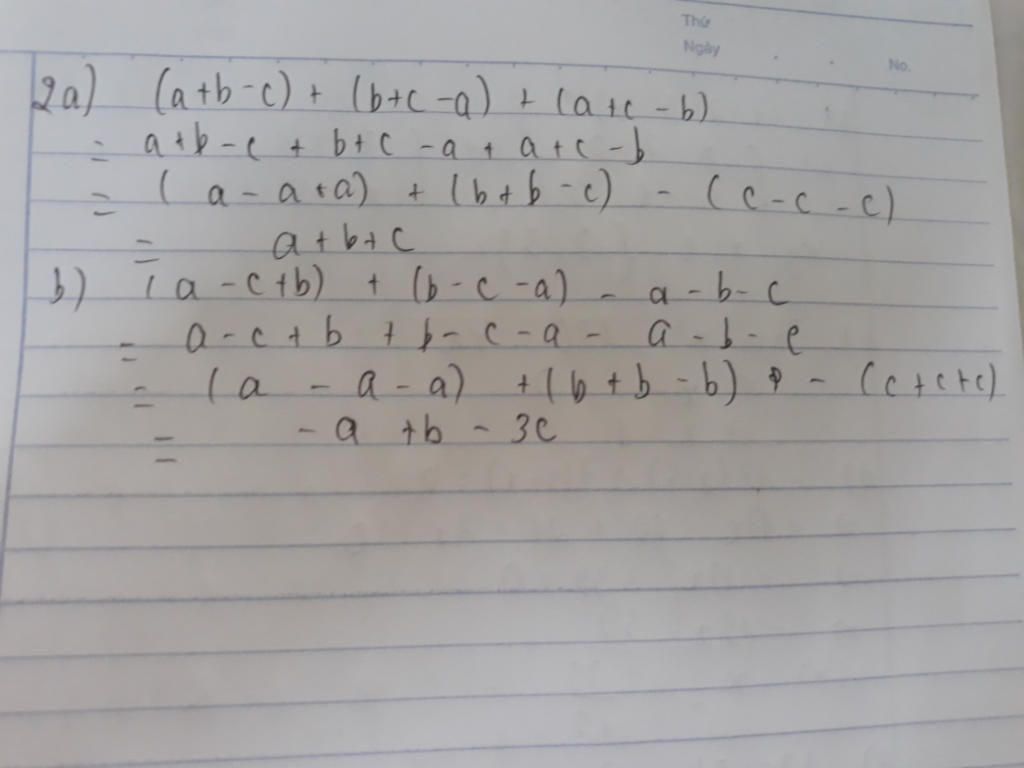 Thứ
Ngày . . No.
2a) (a+b-c) + (b+c-a) + (a+c-b)
= a+b-c + b+c-a + a+c-b
= (a-a+a) + (b+b-c) - (c-c-c)
= a+b+c
b) (a-c+b) + (b-c-a) - a-b-c
= a-c+b + b-c-a - a-b-c
= (a - a-a) + (b+b-b) - (c+c+c)
= -a +b - 3c